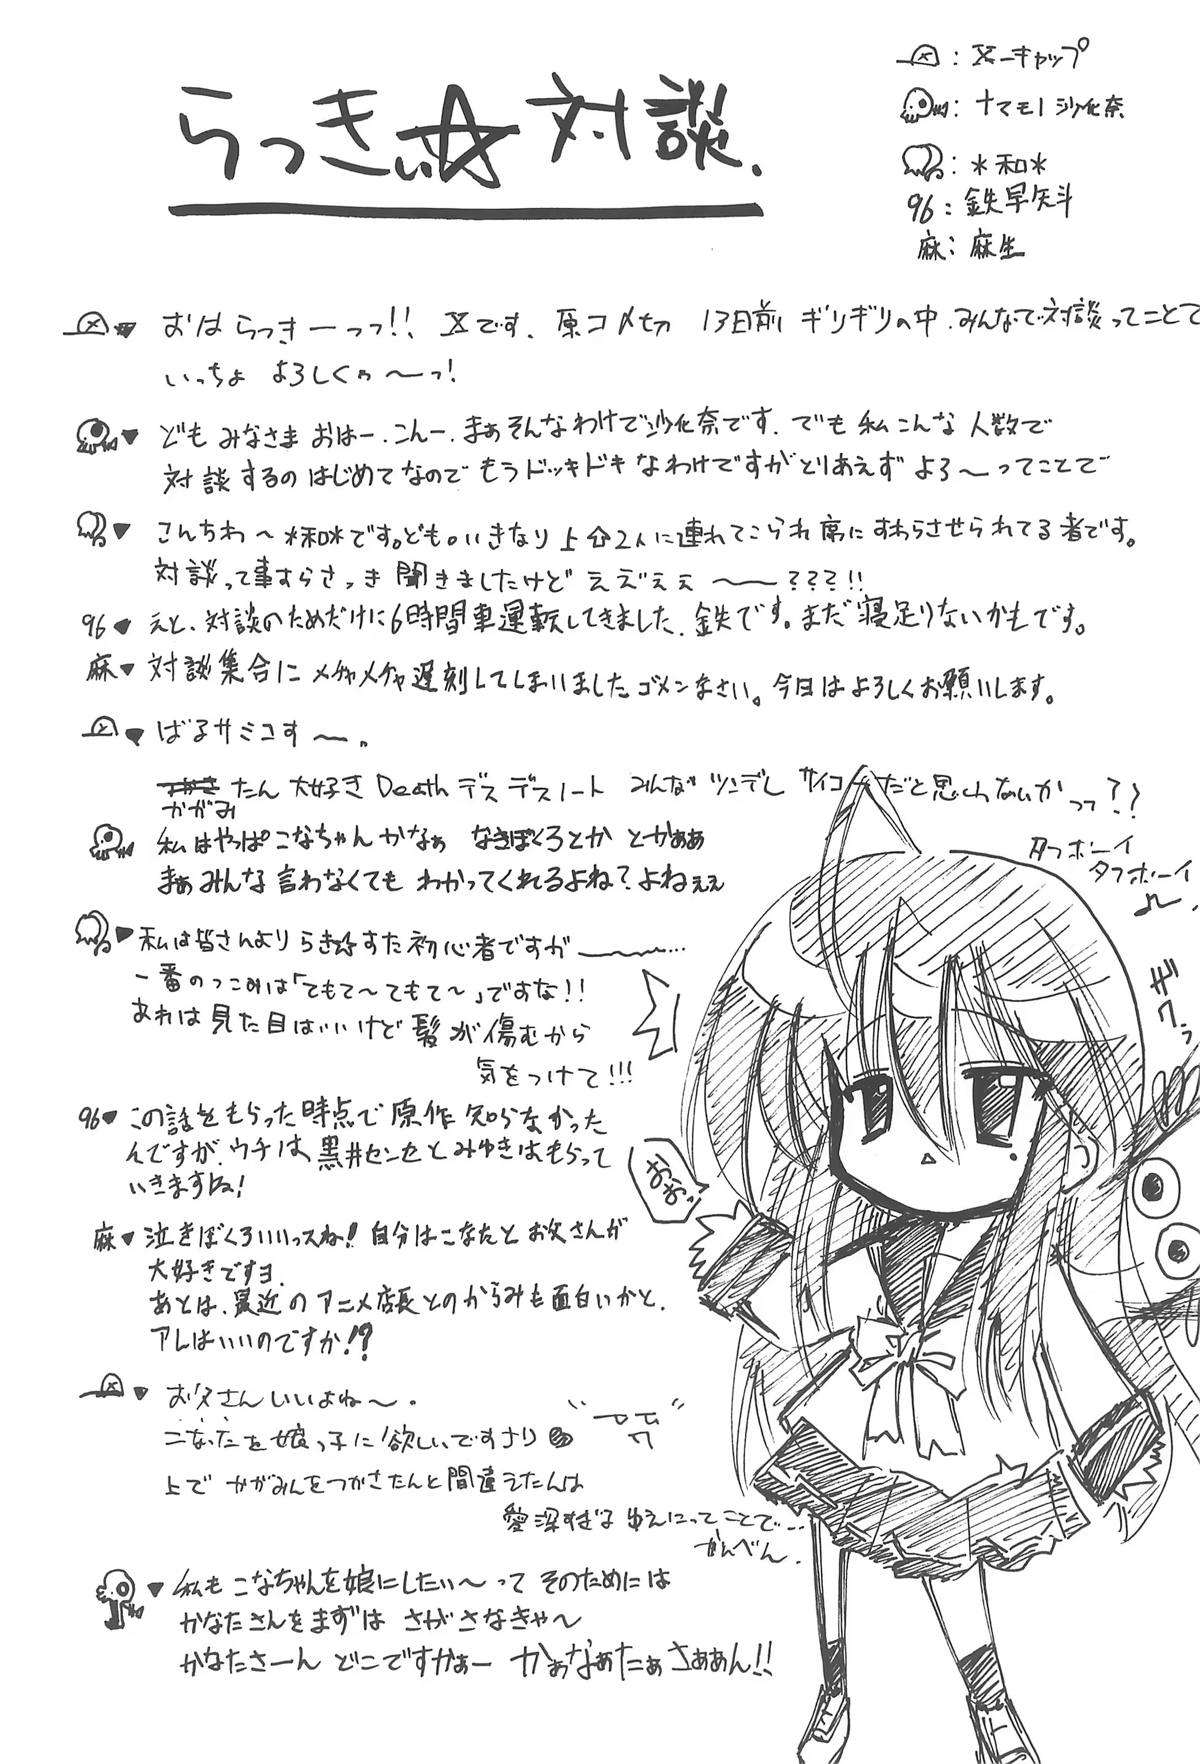 らっきぃ☆対談.
:X-キャップ
:ナマモノ沙化奈
:*和*
96:鉄早矢斗
麻:麻生
おはらっきーっっ!!、Xです、原コメ切 13日前 ギリギリの中、みんなで対談ってことで
いっちょ よろしくゥ〜っ!
どもみなさま おはー、こんー、まぁそんなわけで沙化奈です、でも 私こんな 人数で
対談するの はじめてなので もうドッキドキ なわけですがとりあえず よろ〜ってことで
こんちわ〜 *和*です。ども。いきなり 上の2人に連れてこられ 席に すわらさせられてる 者です。
対談って事すらさっき 聞きましたけど ええ゛ぇぇ 〜〜???!!
96♥ えと、対談のためだけに6時間車運転してきました、鉄です。まだ 寝足りないかもです。
麻♥ 対談集合に メチャメチャ遅刻してしまいました ゴメンなさい。今日は よろしくお願いします。
ばるサミコす 〜。
かがみ たん 大好き Death デス デスノート みんな ツンデレ サイコーだと思わないかって??
タフボーイ
タフボーイ
私はやっぱこなちゃん かなぁ なきぼくろとか とかぁぁ
まぁみんな 言わなくても わかってくれるよね?よねぇぇ
私は皆さんより らき☆すた初心者ですが〜〜...
一番のつっこみは「てもて〜てもて〜」ですな!!
あれは 見た目はいいけど 髪が傷むから
気をつけて!!!
ギュウッ
96♥ この話をもらった時点で 原作 知らなかった
んですが、ウチは、黒井センセとみゆきはもらって
いきますね!
おおっ
麻♥ 泣きぼくろいいっスね! 自分はこなたと お父さんが
大好きですヨ.
あとは、最近の アニメ店長とのからみも面白いかと.
アレはいいのですか!?
お父さんいいよね〜.
こなたを娘っ子に欲しいですさり
上で かがみんをつかさたんと間違えたんは
愛深すぎる ゆえにってことで...
かんべん.
私も こなちゃんを娘にしたい〜 って そのためには
かなたさんを まずは さがさなきゃ〜
かなたさーん どこですかぁー かぁなぁたぁさぁぁん!!